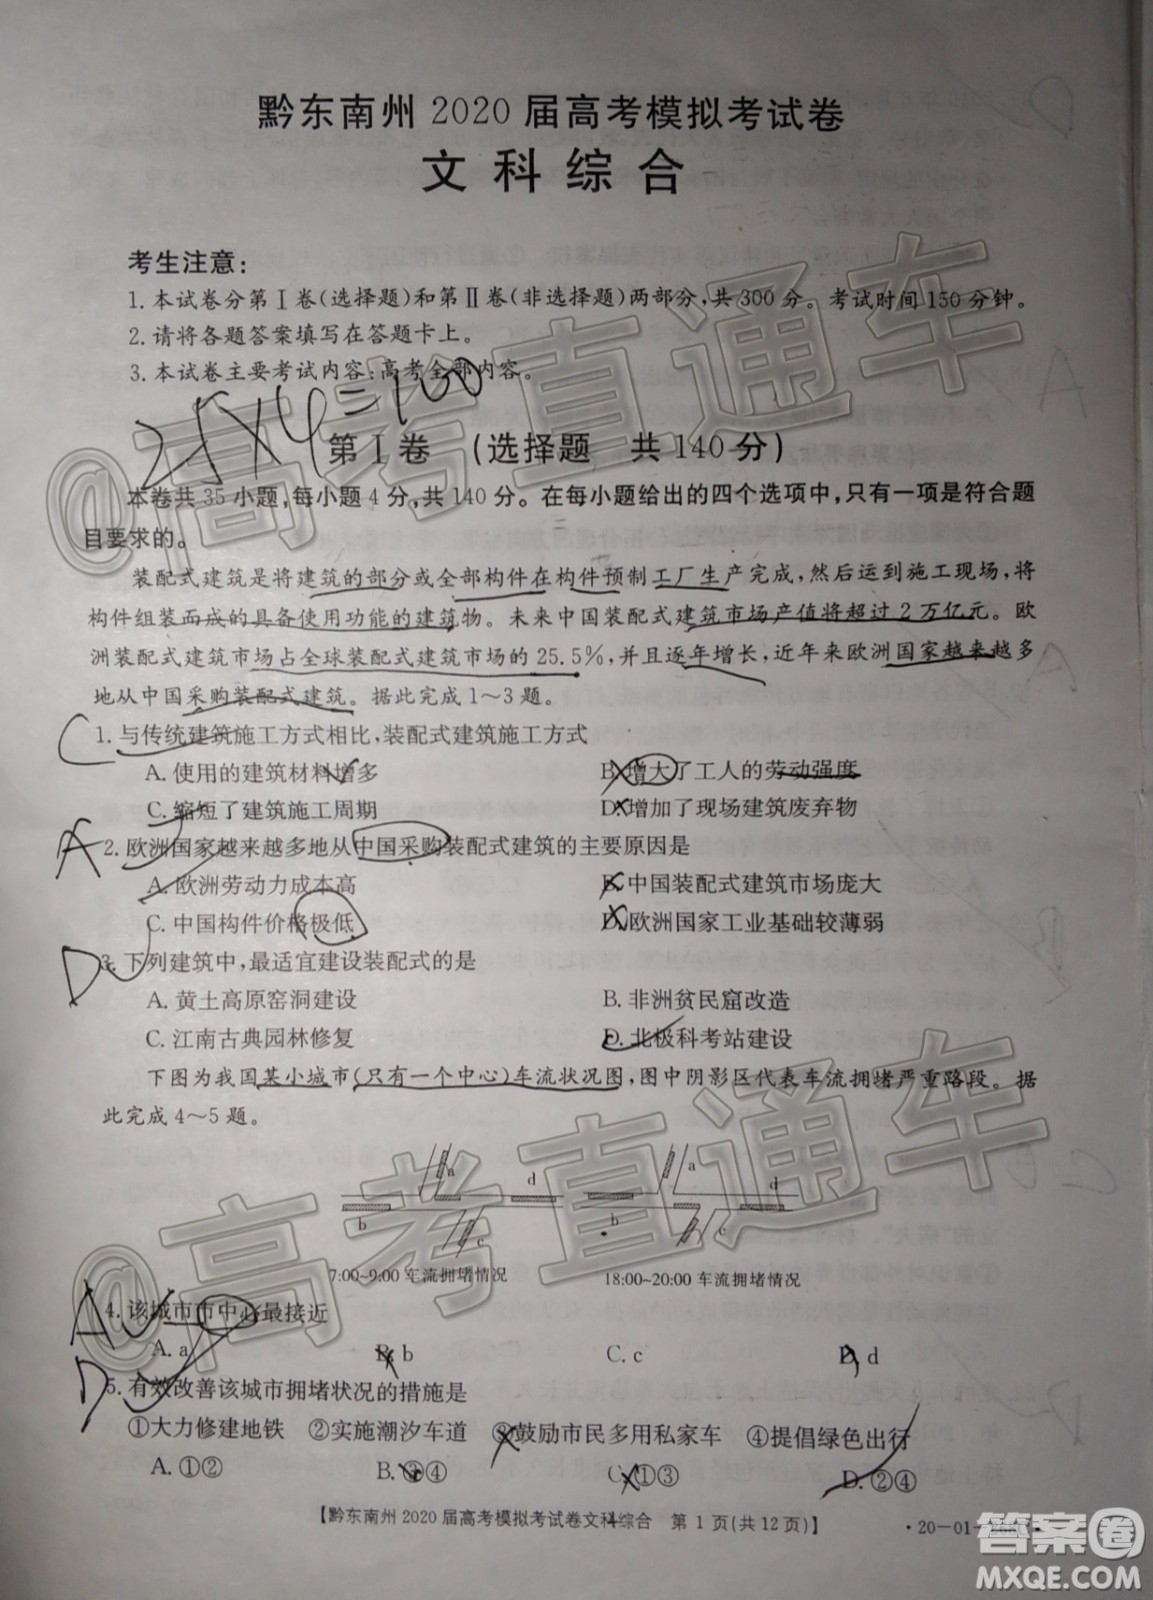 黔东南州 2020 届高考模拟考试卷
文科综合
考生注意:
1. 本试卷分第Ⅰ卷(选择题)和第Ⅱ卷(非选择题)两部分,共 300 分。考试时间 150 分钟。
2. 请将各题答案填写在答题卡上。
3. 本试卷主要考试内容:高考全部内容。
25×4=100
第Ⅰ卷 (选择题 共 140 分)
本卷共 35 小题,每小题 4 分,共 140 分。在每小题给出的四个选项中,只有一项是符合题
目要求的。
装配式建筑是将建筑的部分或全部构件在构件预制工厂生产完成,然后运到施工现场,将
构件组装而成的具备使用功能的建筑物。未来中国装配式建筑市场产值将超过 2 万亿元。欧
洲装配式建筑市场占全球装配式建筑市场的 25.5%,并且逐年增长,近年来欧洲国家越来越多
地从中国采购装配式建筑。据此完成 1～3 题。
C 1. 与传统建筑施工方式相比,装配式建筑施工方式
A. 使用的建筑材料增多 B. 增大了工人的劳动强度
C. 缩短了建筑施工周期 D. 增加了现场建筑废弃物
A 2. 欧洲国家越来越多地从中国采购装配式建筑的主要原因是
A. 欧洲劳动力成本高 B. 中国装配式建筑市场庞大
C. 中国构件价格极低 D. 欧洲国家工业基础较薄弱
D 3. 下列建筑中,最适宜建设装配式的是
A. 黄土高原窑洞建设 B. 非洲贫民窟改造
C. 江南古典园林修复 D. 北极科考站建设
下图为我国某小城市(只有一个中心)车流状况图,图中阴影区代表车流拥堵严重路段。据
此完成 4～5 题。
a d a d
b b
c c
7:00~9:00 车流拥堵情况 18:00~20:00 车流拥堵情况
A 4. 该城市市中心最接近
A. a B. b C. c D. d
D 5. 有效改善该城市拥堵状况的措施是
①大力修建地铁 ②实施潮汐车道 ③鼓励市民多用私家车 ④提倡绿色出行
A. ①② B. ③④ C. ①③ D. ②④
【黔东南州 2020 届高考模拟考试卷文科综合 第 1 页(共 12 页)】
@高考直通车
@高考直通车
答案圈
MXQE.COM